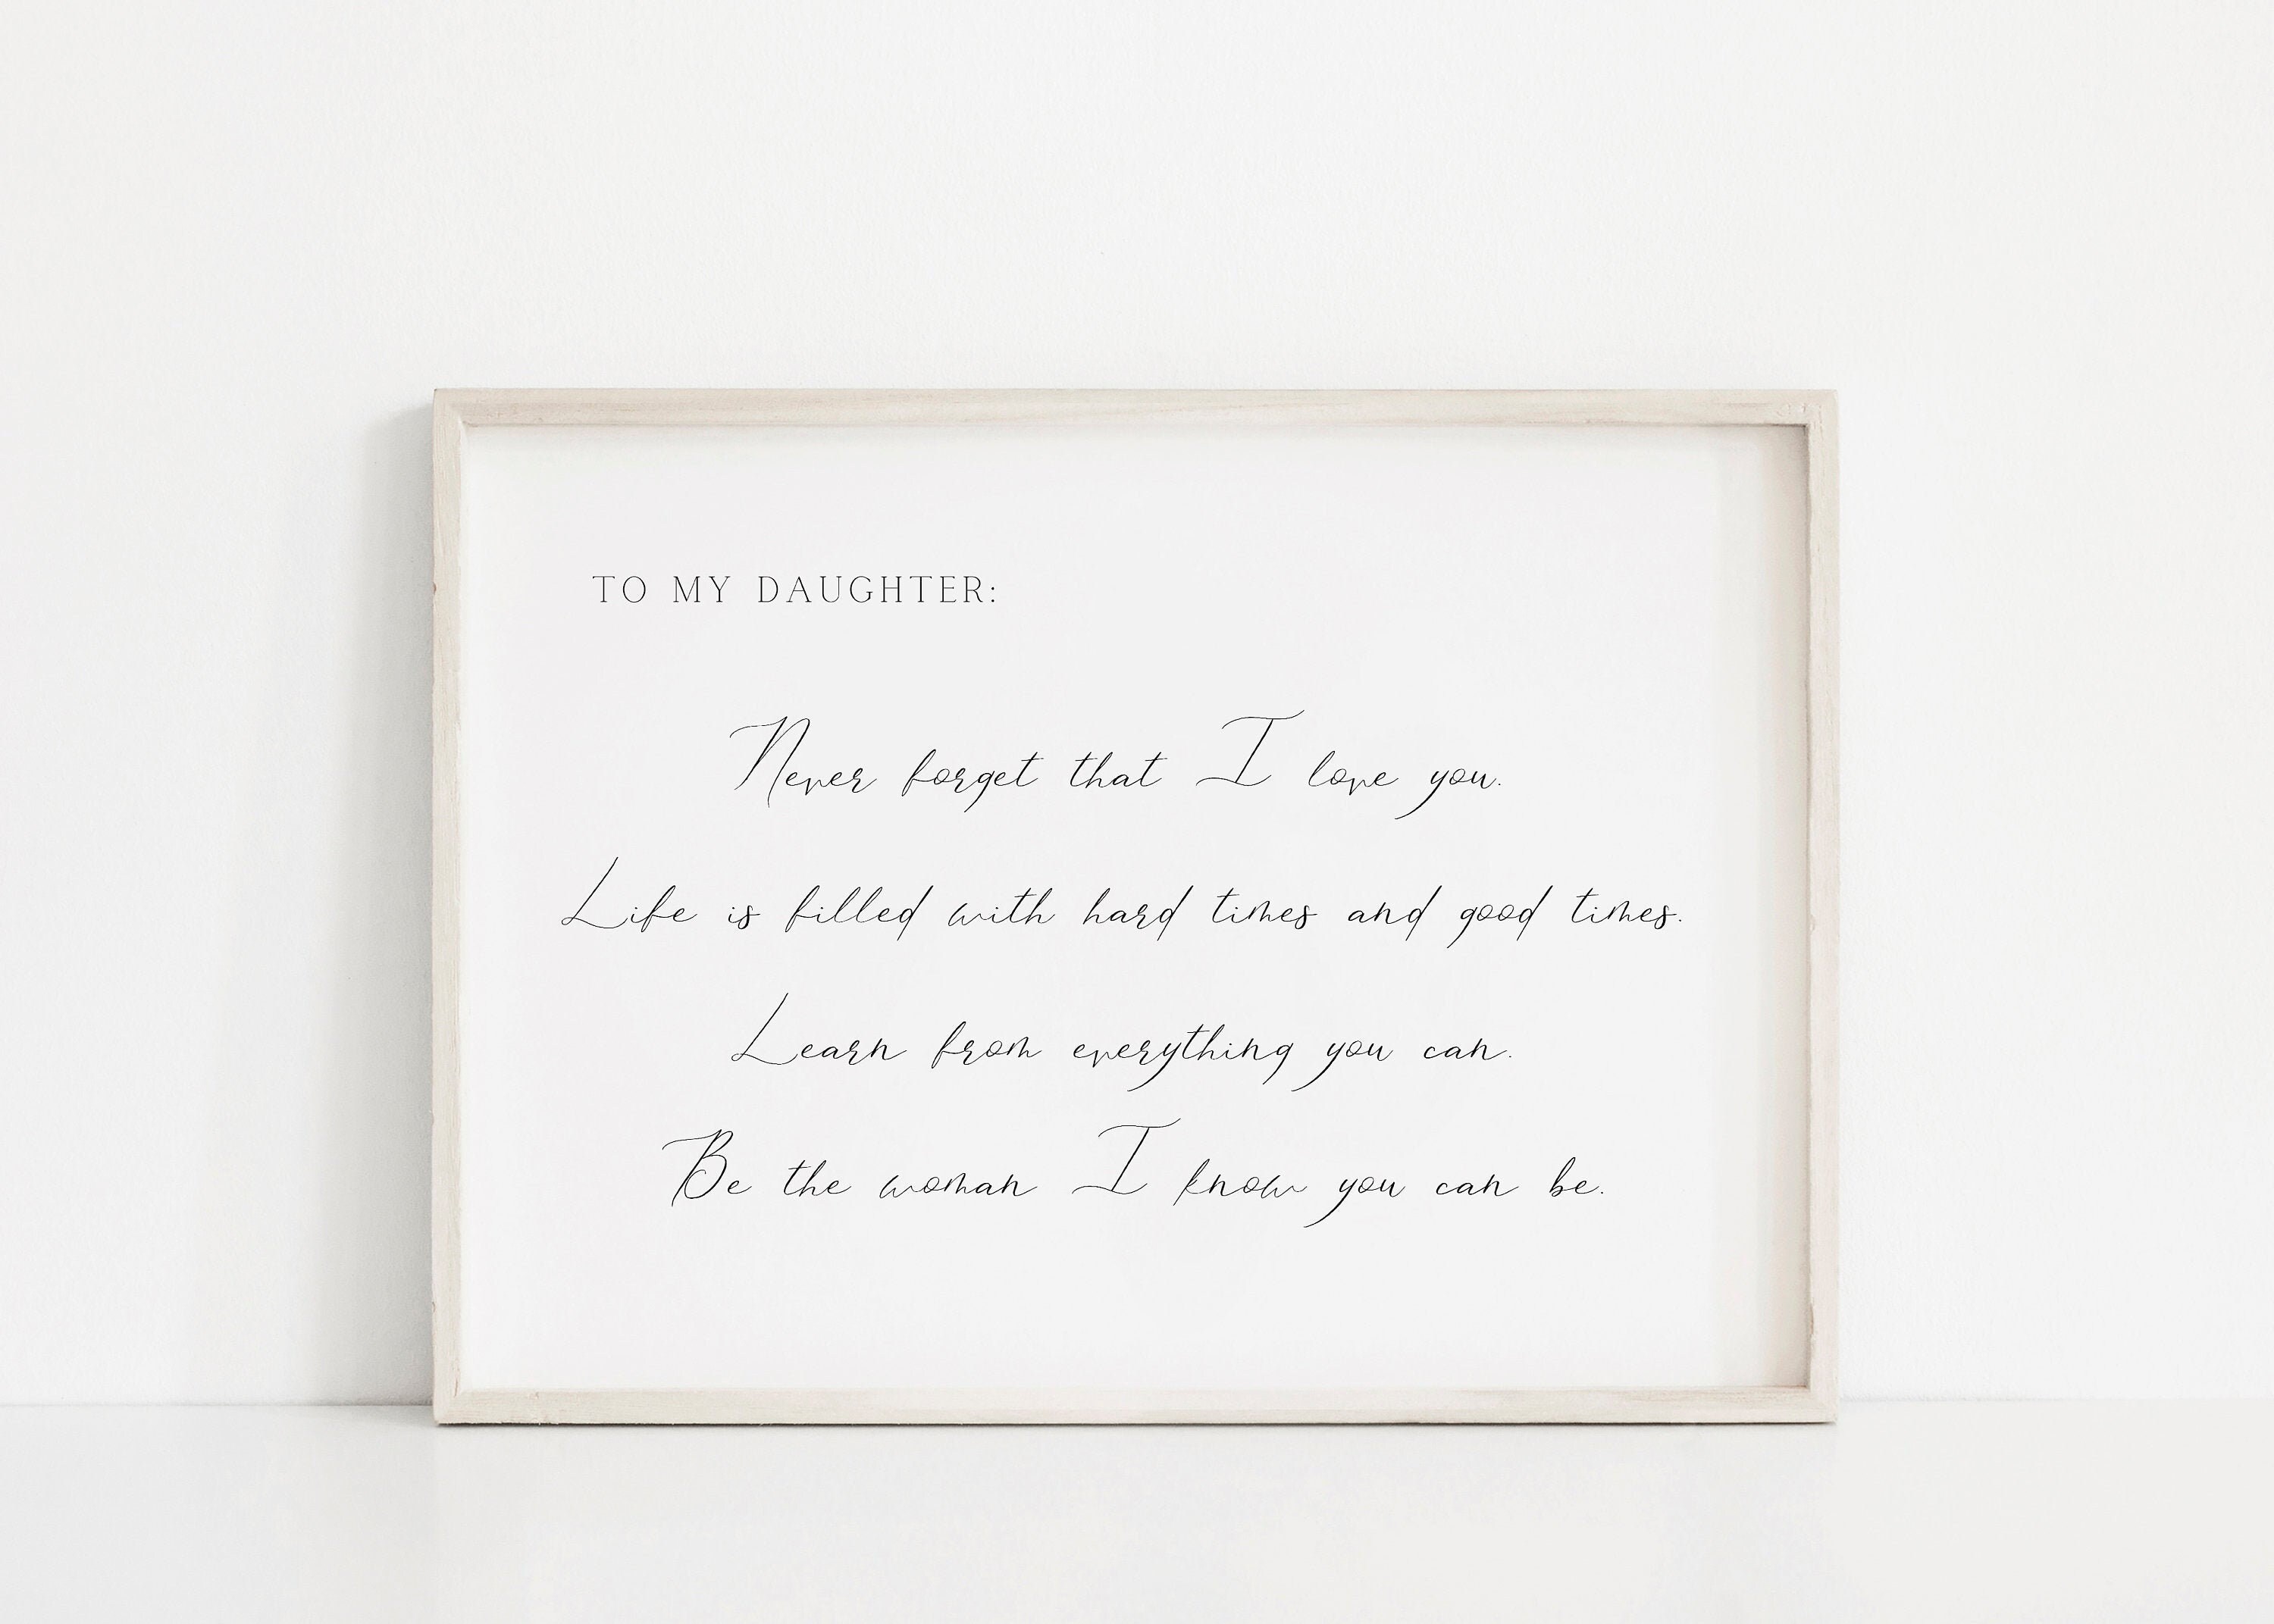 TO MY DAUGHTER:
Never forget that I love you.
Life is filled with hard times and good times.
Learn from everything you can.
Be the woman I know you can be.